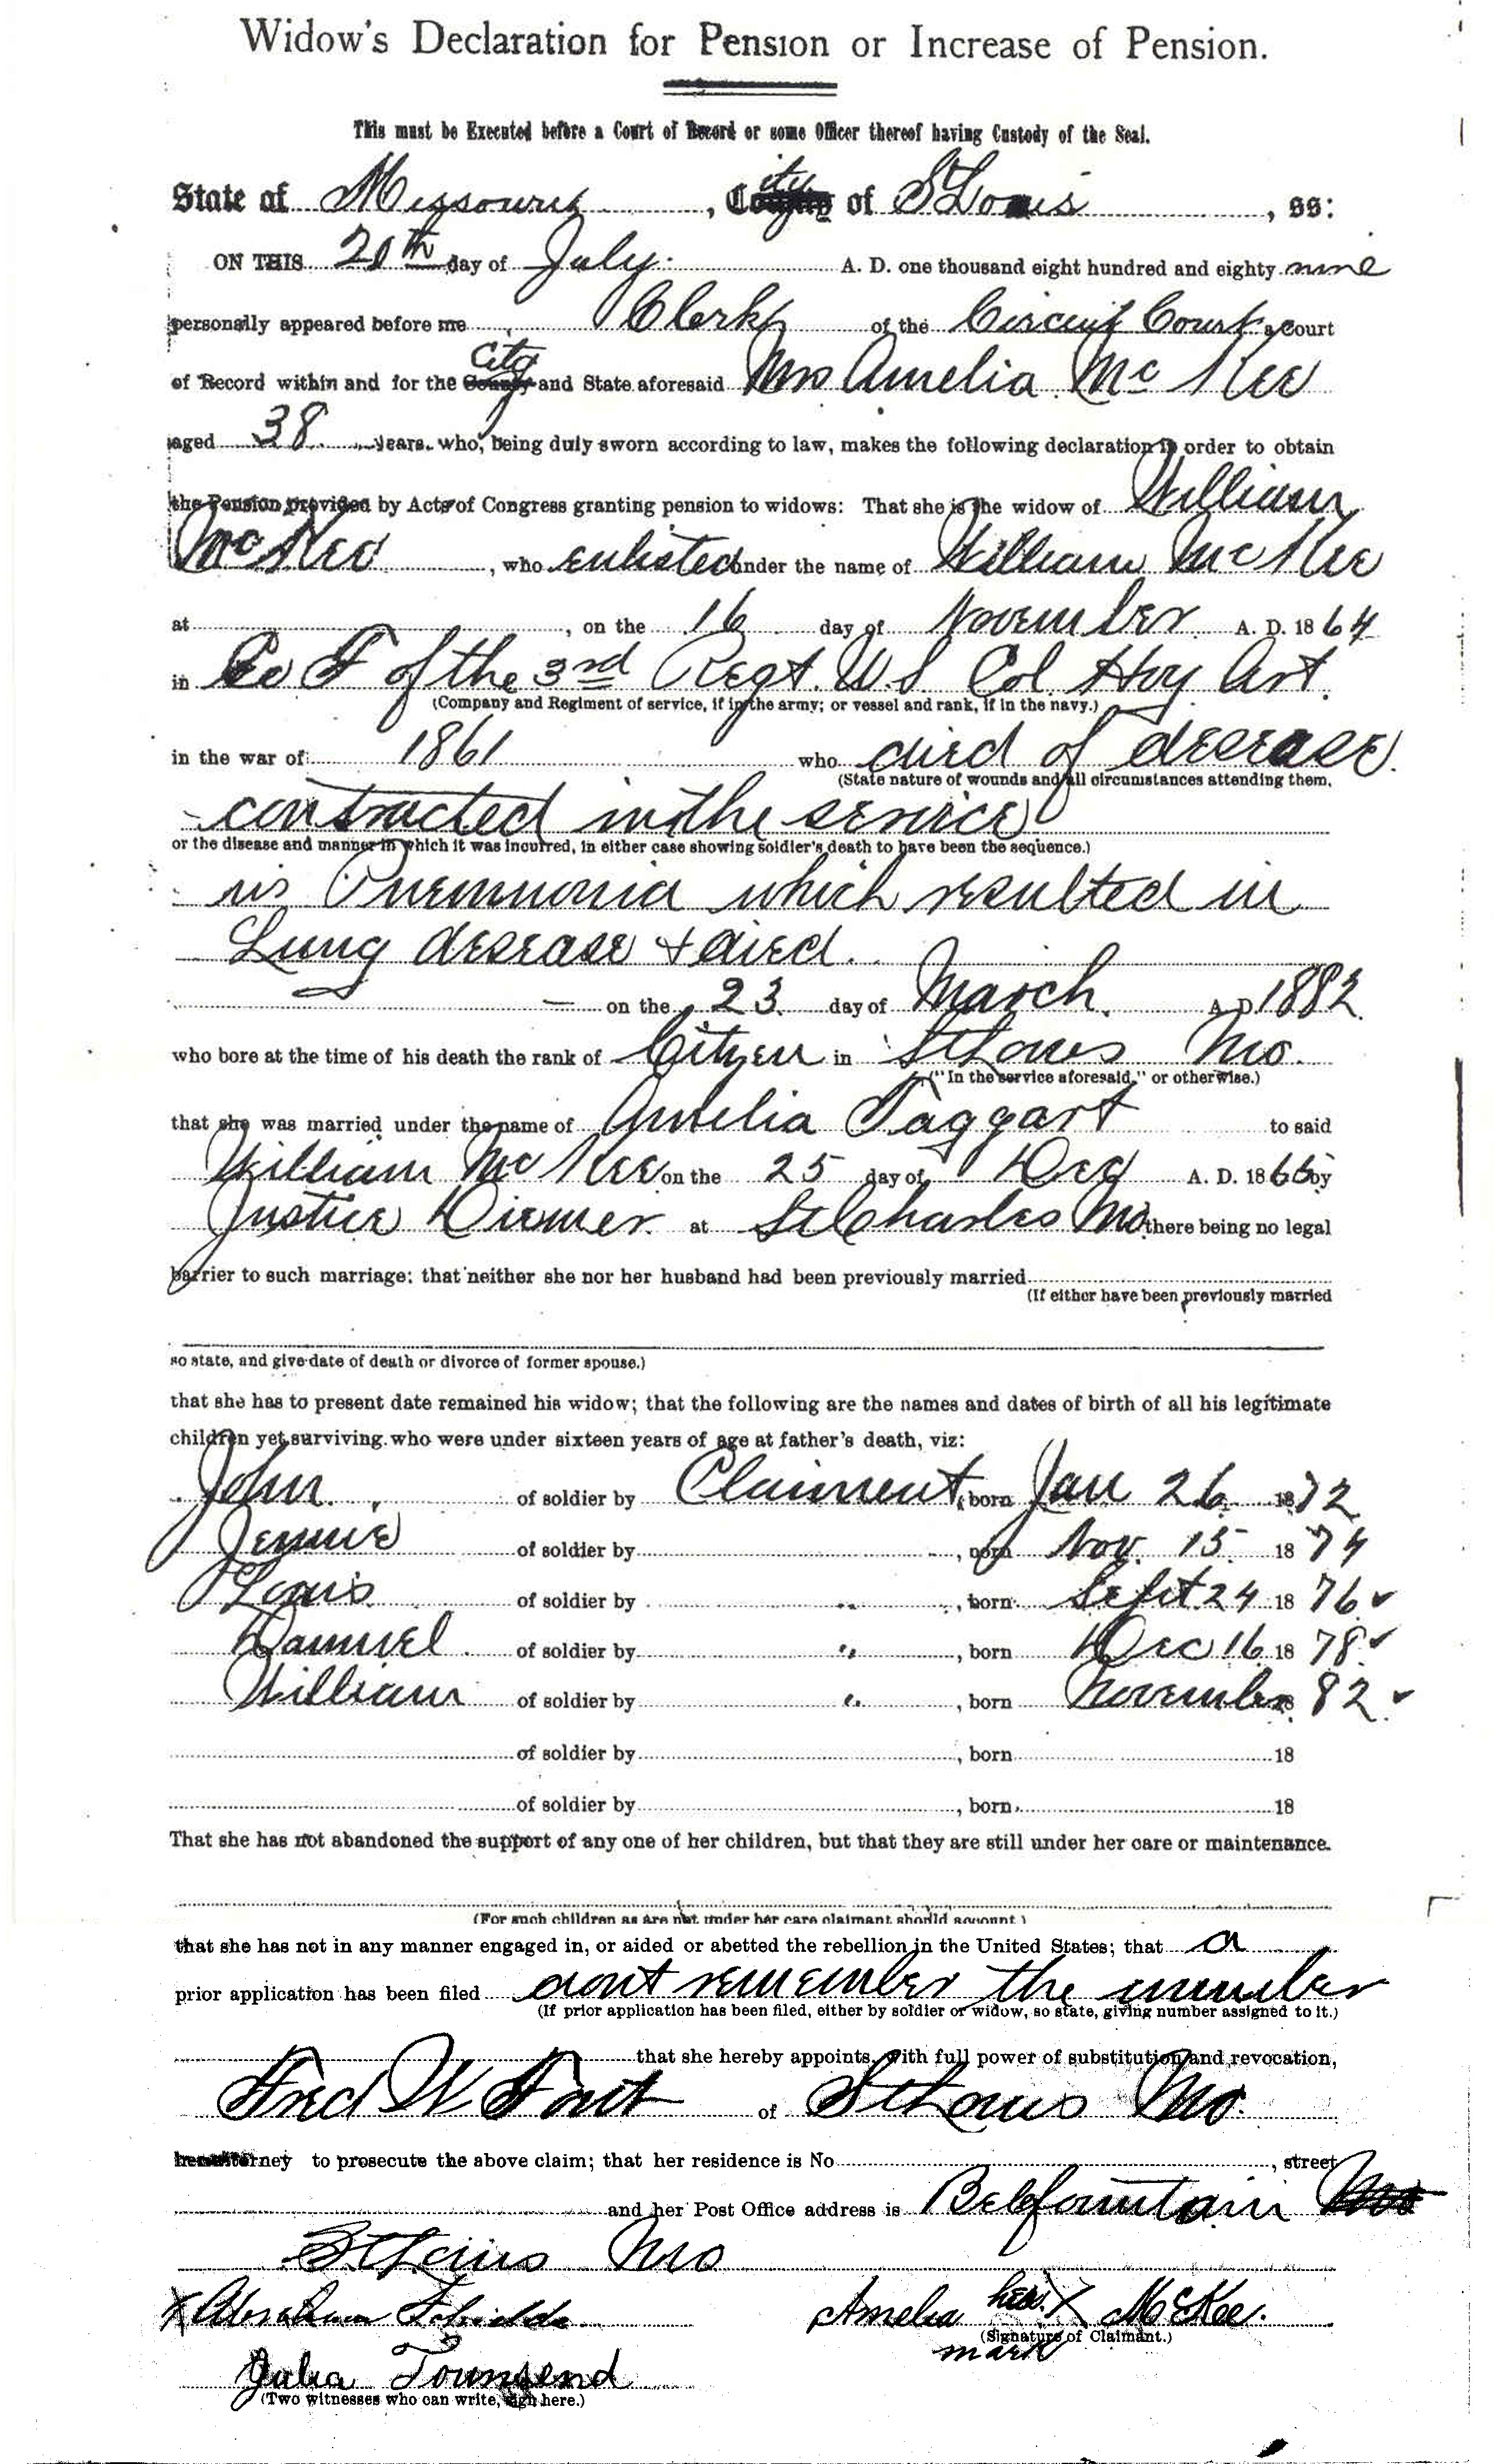 Widow's Declaration for Pension or Increase of Pension.
This must be Executed before a Court of Record or some Officer thereof having Custody of the Seal.
State of Missouri, City of St Louis, ss:
ON THIS 20th day of July A. D. one thousand eight hundred and eighty nine
personally appeared before me Clerk of the Circuit Court a Court
of Record within and for the City and State aforesaid Mrs Amelia Mc Kee
aged 38 years, who, being duly sworn according to law, makes the following declaration in order to obtain
the Pension provided by Acts of Congress granting pension to widows: That she is the widow of William
McKee, who enlisted under the name of William McKee
at , on the 16 day of November A. D. 1864
in Co F of the 3rd Regt. U.S. Col Hvy Art.
(Company and Regiment of service, if in the army; or vessel and rank, if in the navy.)
in the war of 1861 who died of desease
(State nature of wounds and all circumstances attending them,
contracted in the service
or the disease and manner in which it was incurred, in either case showing soldier's death to have been the sequence.)
Pnemmonia which resulted in
Lung desease + died.
on the 23 day of March. A. D. 1882
who bore at the time of his death the rank of Citizen in St Louis Mo.
("In the service aforesaid," or otherwise.)
that she was married under the name of Amelia Taggart to said
William McKee on the 25 day of Dec A. D. 1866 by
Justice Diemer at St Charles Mo there being no legal
barrier to such marriage: that neither she nor her husband had been previously married
(If either have been previously married
so state, and give date of death or divorce of former spouse.)
that she has to present date remained his widow; that the following are the names and dates of birth of all his legitimate
children yet surviving who were under sixteen years of age at father's death, viz:
John of soldier by Claiment, born Jan 26 1872
Jennie of soldier by , born Nov. 15 1874
Louis of soldier by " , born Sept 24 1876 ✓
Samuel of soldier by " , born Dec 16 1878 ✓
William of soldier by " , born November 1882 ✓
of soldier by , born 18
of soldier by , born 18
That she has not abandoned the support of any one of her children, but that they are still under her care or maintenance.
(For such children as are not under her care claimant should account.)
that she has not in any manner engaged in, or aided or abetted the rebellion in the United States; that a
prior application has been filed dont remember the number
(If prior application has been filed, either by soldier or widow, so state, giving number assigned to it.)
that she hereby appoints, with full power of substitution and revocation,
Fred W Fout of St Louis Mo.
her attorney to prosecute the above claim; that her residence is No , street
and her Post Office address is Belfountain
St Louis Mo
X Abraham Amelia her X McKee.
(Signature of Claimant.)
mark
Julia Townsend
(Two witnesses who can write, sign here.)